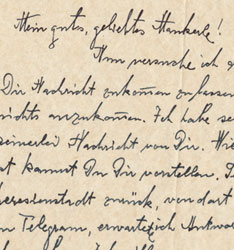 Mein gutes, geliebtes Hankerle!
Nun versuche ich
Dir Nachricht zukommen zu lassen
nichts anzukommen. Ich habe se
keinerlei Nachricht von Dir. Wie
st kannst Du Dir vorstellen. D
heresienstadt zurück, von dort
n Telegram, erwartete ich Antwor